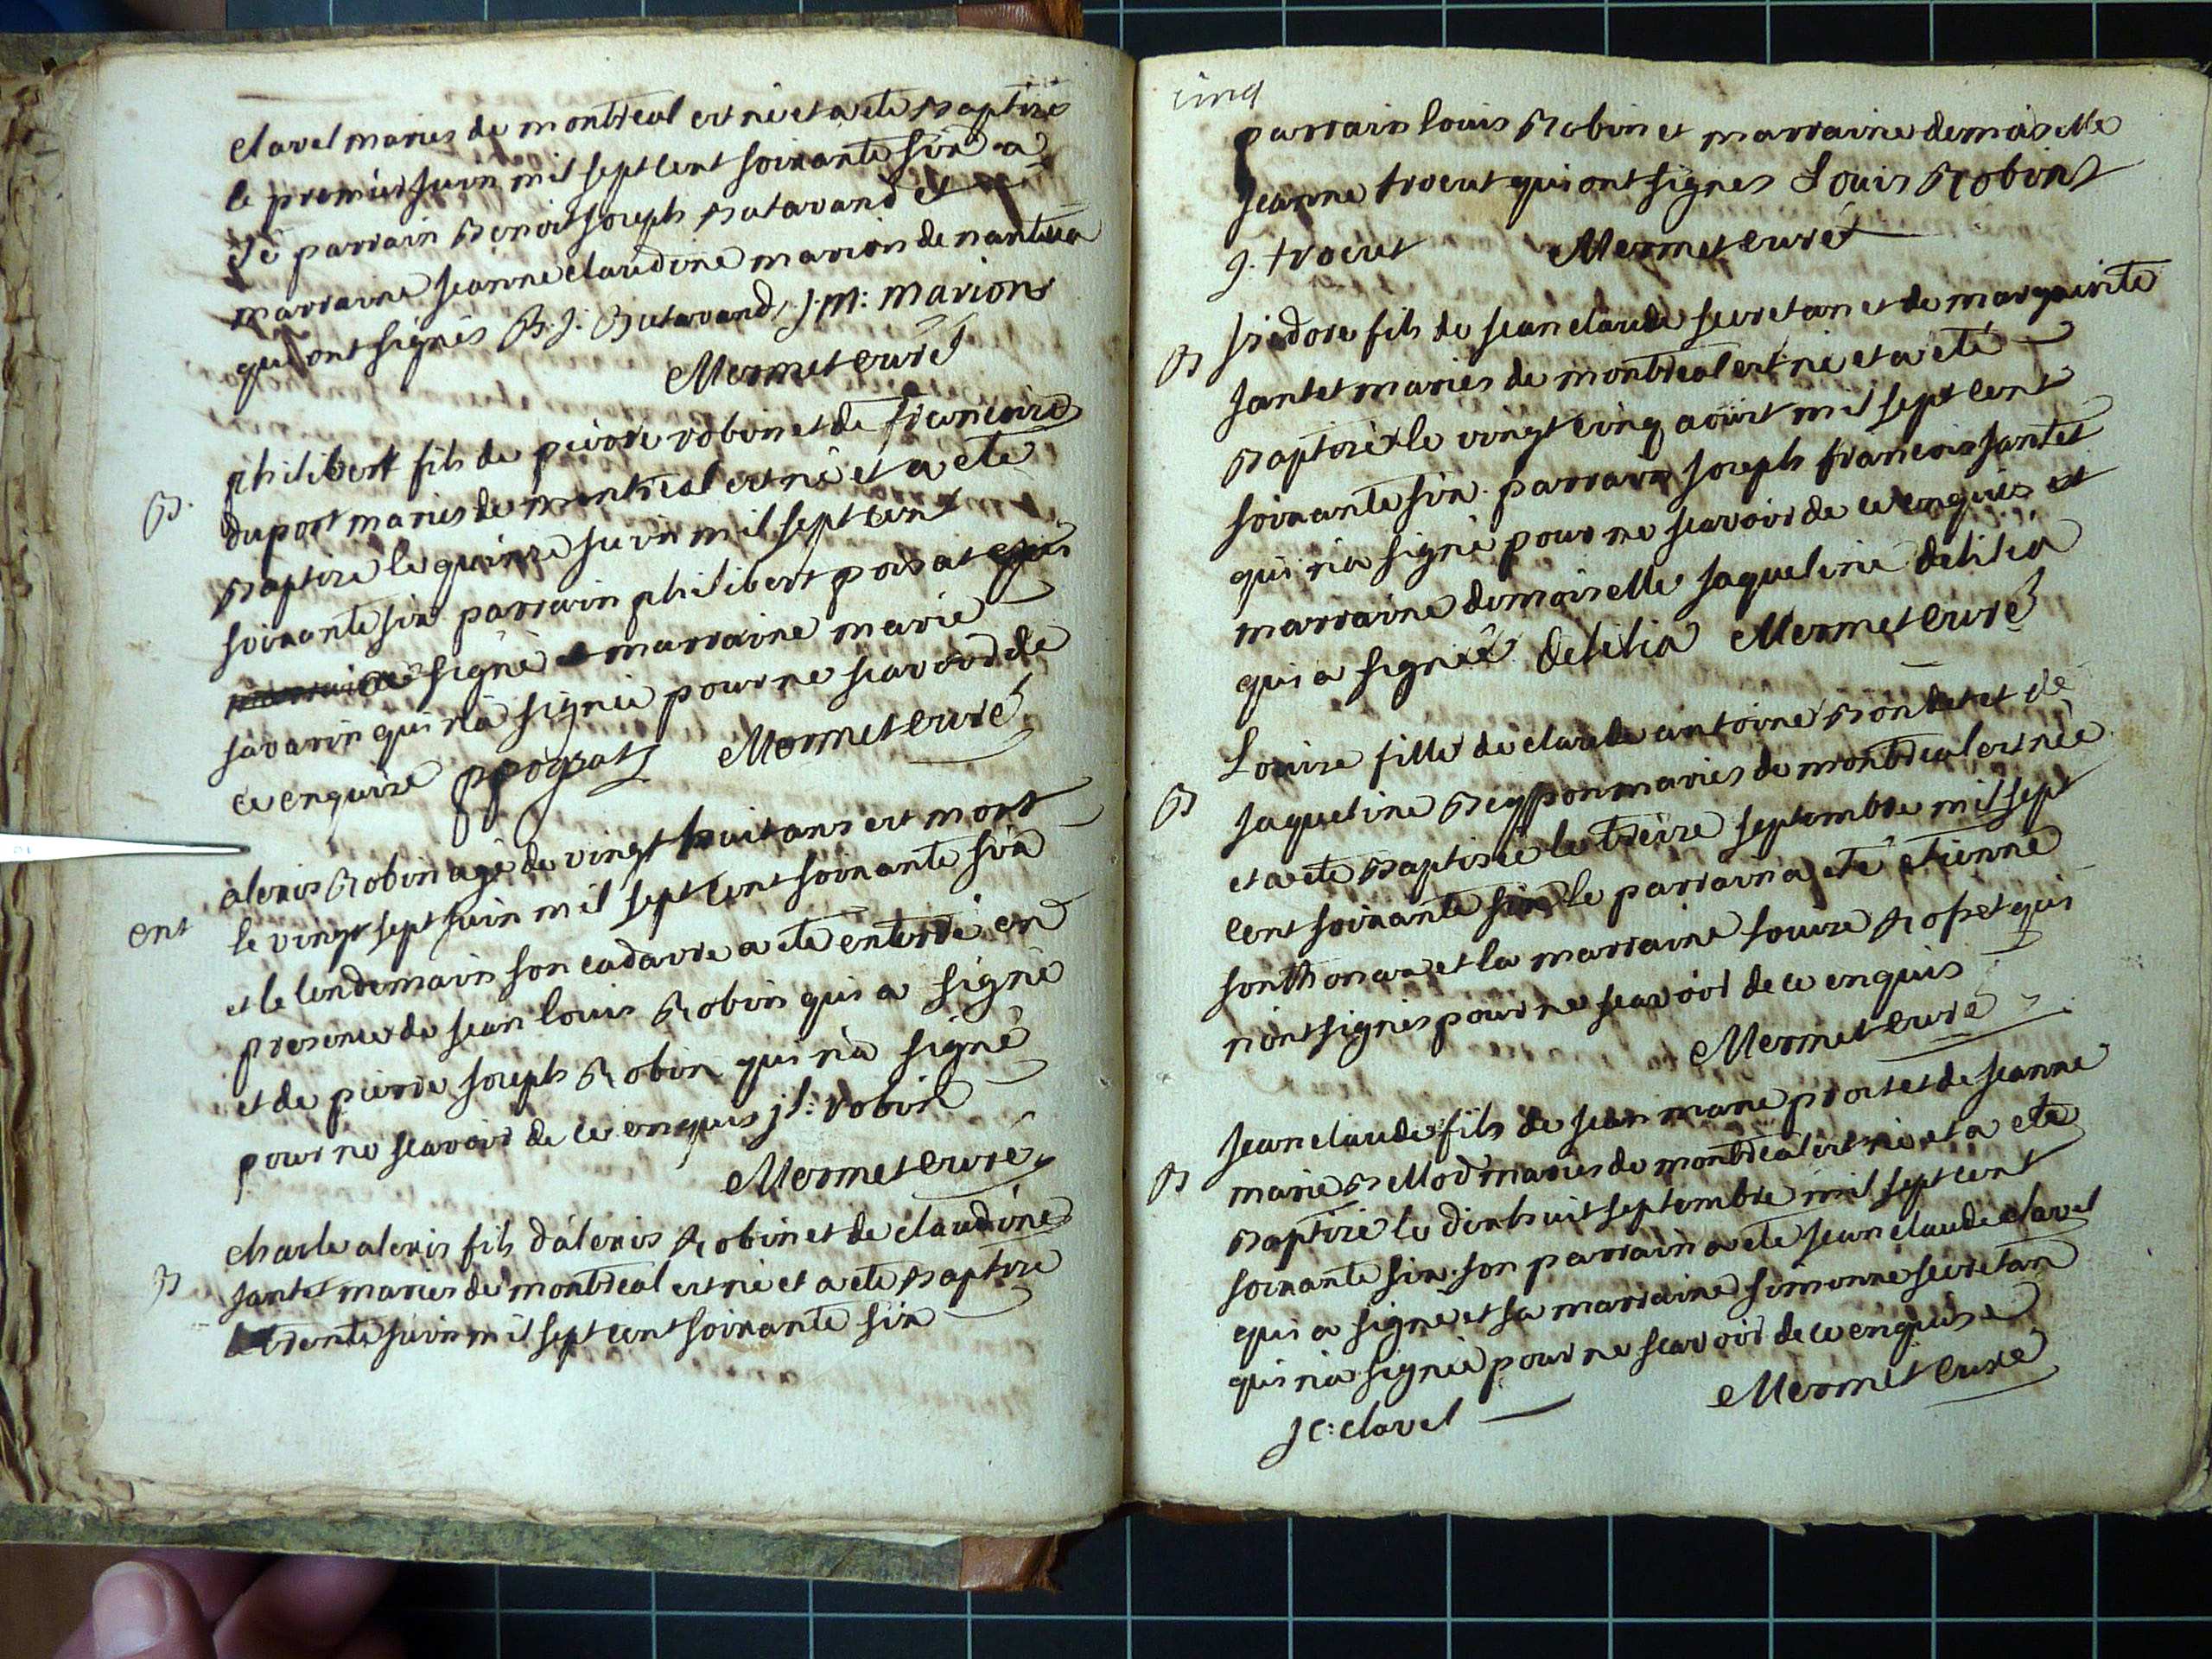 clavel maries de montreal est né et a eté Baptize
le premier juin mil sept cent soixante six a
été parrain Benoit joseph Butavand et
marraine jeanne claudine marion de nantua
qui ont signés B. J. Butavand, j. m: marion
Mermet curé
B. philibert fils de pierre robin et de francoise
duport maries de montreal est né et a eté
Baptize le quinze juin mil sept cent
soixante six parrain philibert poisat qui
signé marraine marie
savarin qui n'a signée pour ne scavoir de
ce enquise Mermet curé
alexis Robin agé de vingt huit ans est mort
ent le vingt sept juin mil sept cent soixante six
et le lendemain son cadavre a eté enterré en
presence de jean louis Robin qui a signé
et de pierre joseph Robin qui n'a signé
pour ne scavoir de ce enquis j l: robin
Mermet curé
charle alexis fils d'alexis Robin et de claudine
B jantet maries de montreal est né et a eté Baptize
le trente juin mil sept cent soixante six
cinq
parrain louis Robin et marraine demoiselle
jeanne trocut qui ont signes Louis Robin
j. trocut Mermet curé
isidore fils de jean claude secretan et de marguerite
B jantet maries de montreal est né et a eté
Baptizé le vingt cinq aoust mil sept cent
soixante six. parrain joseph francois jantet
qui n'a signé pour ne scavoir de ce enquis et
marraine demoiselle jaqueline delilia
qui a signée delilia Mermet curé
Louise fille de claude antoine Bondet et de
B jaqueline maries de montreal est née
et a eté Baptisée le treize septembre mil sept
cent soixante six le parrain a eté etienne
sonthonax et la marraine louise qui
n'ont signés pour ne scavoir de ce enquis
Mermet curé
jean claude fils de jean marie prost et de jeanne
B marie Bellod maries de montreal est né et a eté
Baptizé le dix huit septembre mil sept cent
soixante six. son parrain a eté jean claude clavel
qui a signé et sa marraine simonne secretan
qui n'a signée pour ne scavoir de ce enquise
j c: clavel Mermet curé